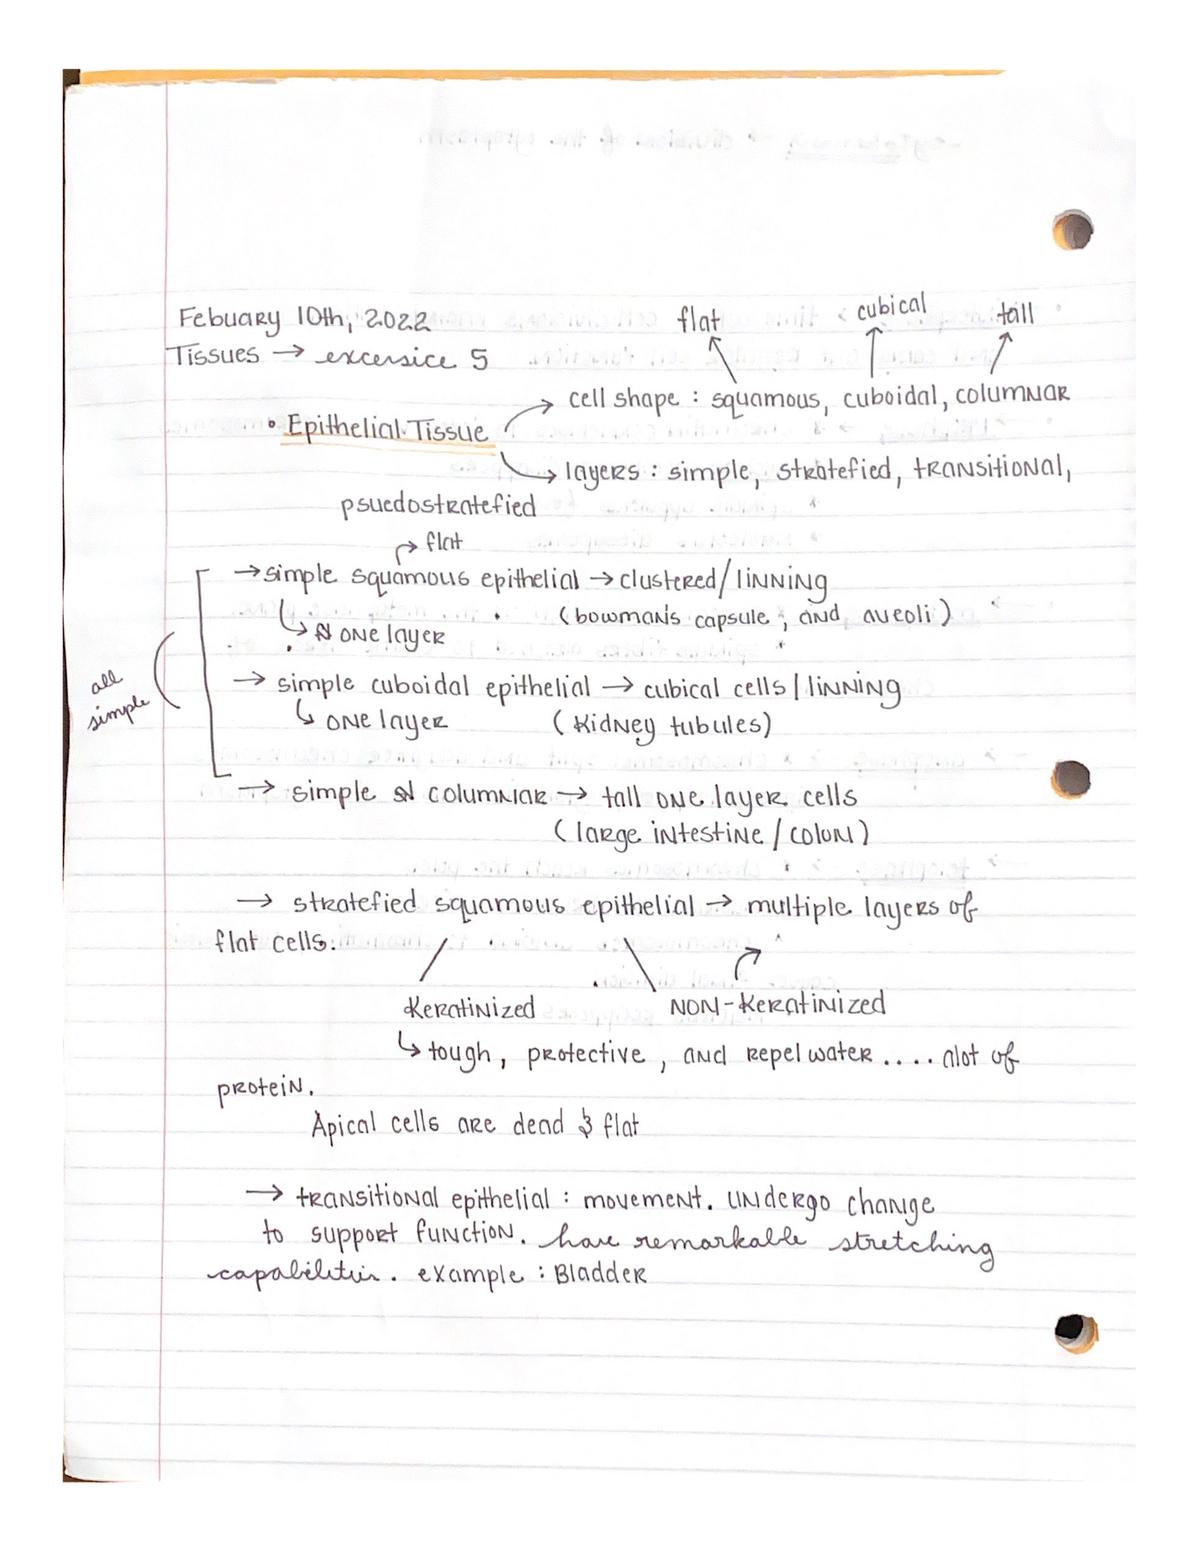 flat cubical tall
Febuary 10th, 2022
Tissues → excersice 5
→ cell shape : squamous, cuboidal, columnar
• Epithelial Tissue
→ layers : simple, stratefied, transitional,
psuedostratefied
→ flat
→ simple squamous epithelial → clustered/linning
(bowman's capsule, and aveoli)
↳ one layer
all
simple
→ simple cuboidal epithelial → cubical cells/linning
↳ one layer (kidney tubules)
→ simple columnar → tall one layer cells
(large intestine/colon)
→ stratefied squamous epithelial → multiple layers of
flat cells.
Keratinized NON-Keratinized
↳ tough, protective, and repel water .... alot of
protein.
Apical cells are dead & flat
→ transitional epithelial : movement. undergo change
to support function. have remarkable stretching
capabilities. example : Bladder